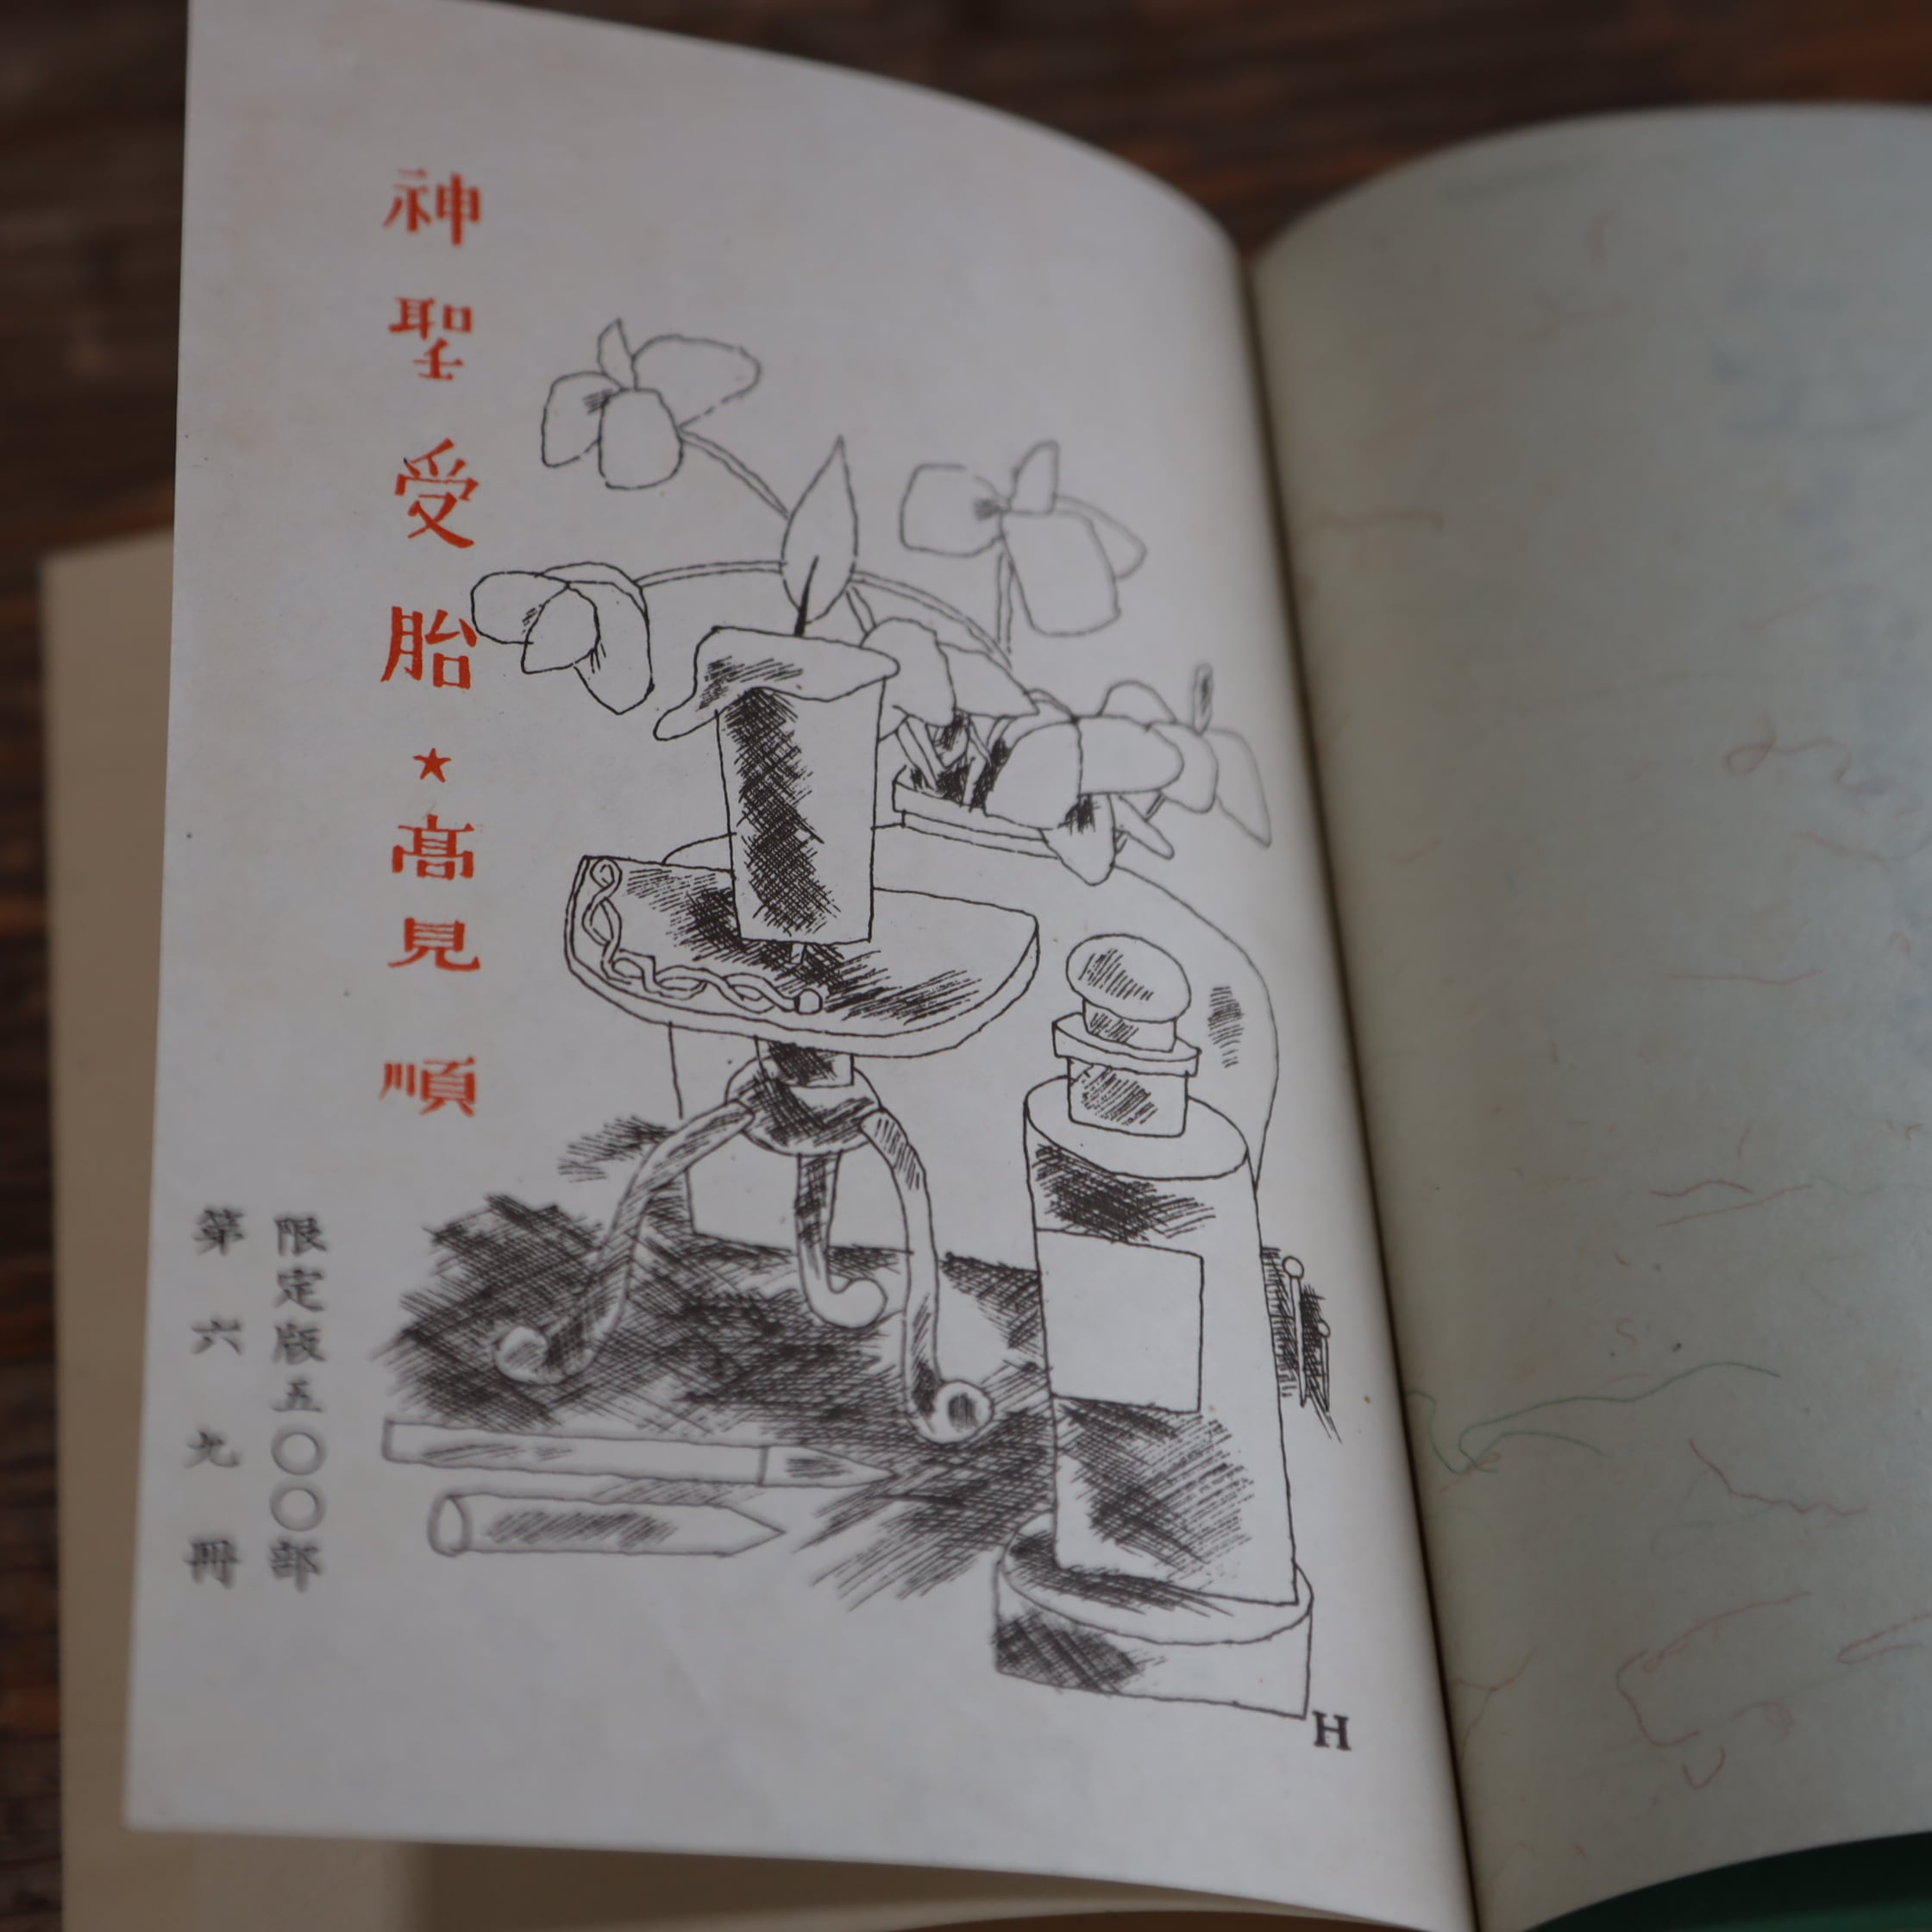 神聖受胎★高見順
限定版五〇〇部
第六九冊
H